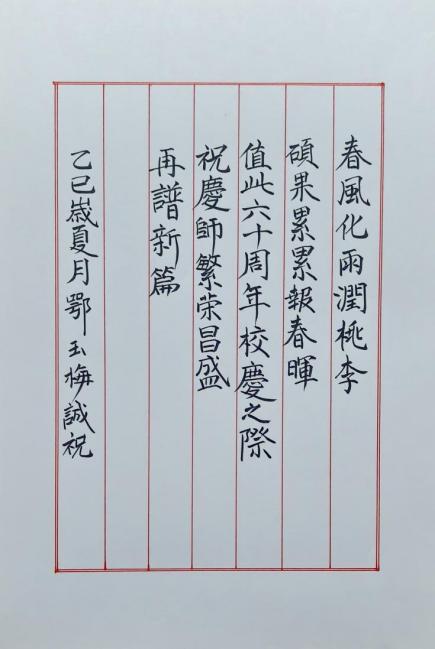 春風化雨潤桃李
碩果累累報春暉
值此六十周年校慶之際
祝慶師繁荣昌盛
再譜新篇
乙巳嵗夏月鄂玉梅誠祝